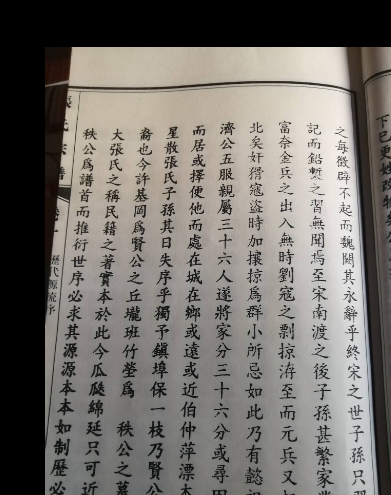 之每徵辟不起而魏闕其永辭乎終宋之世子孫只習
記而鉛槧之習無聞焉至宋南渡之後子孫甚繁家業
富奈金兵之出入無時劉寇之剽掠洊至而元兵又
北矣奸猾寇盜時加攘掠爲群小所忌如此乃有懿
濟公五服親屬三十六人遂將家分三十六分或尋田
而居或擇便他而處在城在鄉或遠或近伯仲萍漂本
星散張氏子孫其日失序乎獨予鎭埠保一枝乃賢公
裔也今許基岡爲賢公之丘壠班竹塋爲 秩公之墓
大張氏之稱民籍之著實本於此今瓜瓞綿延只可近
秩公爲譜首而推衍世序必求其源源本本如制歷必
張氏宗譜
歷代源流序